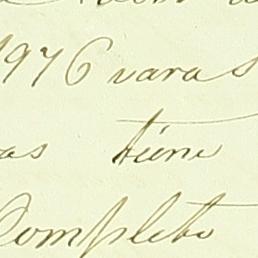 1976 varas
as tiene
Completo